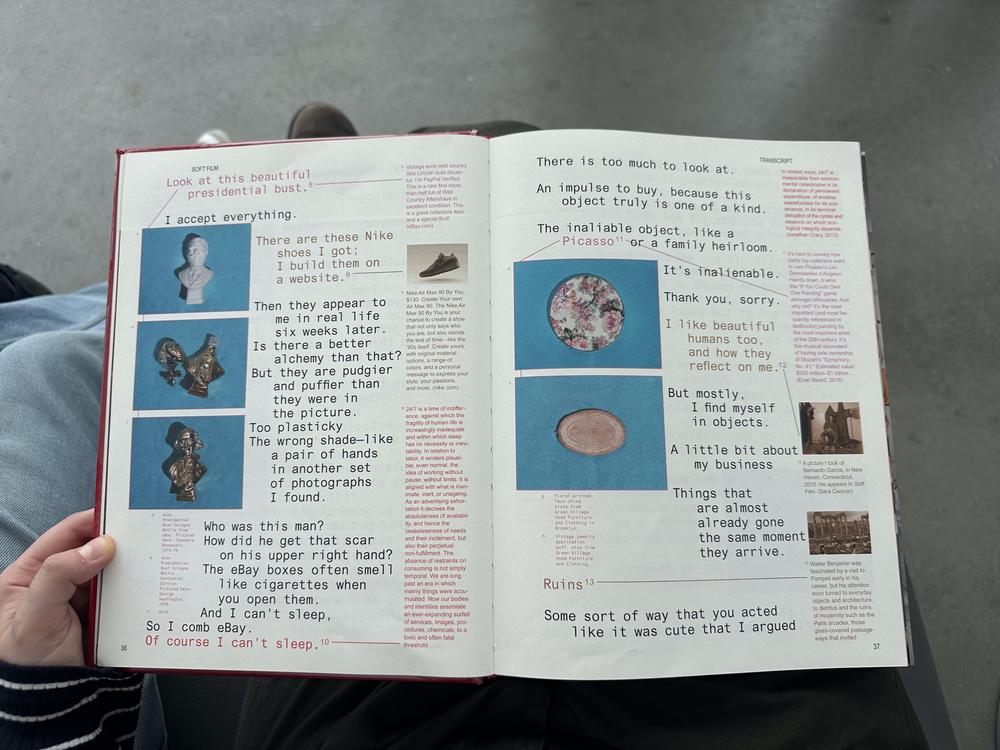 SOFT FILM
Look at this beautiful
presidential bust.8
I accept everything.
There are these Nike
shoes I got;
I build them on
a website.9
Then they appear to
me in real life
six weeks later.
Is there a better
alchemy than that?
But they are pudgier
and puffier than
they were in
the picture.
Too plasticky
The wrong shade—like
a pair of hands
in another set
of photographs
I found.
Who was this man?
How did he get that scar
on his upper right hand?
The eBay boxes often smell
like cigarettes when
you open them.
And I can't sleep,
So I comb eBay.
Of course I can't sleep.10
Avon
Presidential
Bust Cologne
Bottle from
eBay. Pictured
here: Theodore
Roosevelt,
Avon
Presidential
Bust Cologne
Bottle
Centennial
Edition
Pictured here:
George
Washington,
1979
36
Vintage avon wild country
Abe Lincoln bust decan-
ter. I'm PayPal Verified
This is a rare find more
than half full of Wild
Country Aftershave in
excellent condition. This
is a great collectors item
and a special find!
(eBay.com)
Nike Air Max 90 By You.
$130. Create Your own
Air Max 90. The Nike Air
Max 90 By You is your
chance to create a shoe
that not only says who
you are, but also stands
the test of time—like the
'90s itself. Create yours
with original material
options, a range of
colors, and a personal
message to express your
style, your passions,
and more. (nike.com)
10 24/7 is a time of indiffer-
ence, against which the
fragility of human life is
increasingly inadequate
and within which sleep
has no necessity or inevi-
tability. In relation to
labor, it renders plausi-
ble, even normal, the
idea of working without
pause, without limits. It is
aligned with what is inan-
imate, inert, or unageing.
As an advertising exhort-
ation it decrees the
absoluteness of availabil-
ity, and hence the
ceaselessness of needs
and their incitement, but
also their perpetual
non-fulfillment. The
absence of restraints on
consuming is not simply
temporal. We are long
past an era in which
mainly things were accu-
mulated. Now our bodies
and identities assimilate
an ever-expanding surfeit
of services, images, pro-
cedures, chemicals, to a
toxic and often fatal
threshold
TRANSCRIPT
There is too much to look at.
An impulse to buy, because this
object truly is one of a kind.
The inaliable object, like a
Picasso11 or a family heirloom.
It's inalienable.
Thank you, sorry.
I like beautiful
humans too,
and how they
reflect on me.12
But mostly,
I find myself
in objects.
A little bit about
my business
Things that
are almost
already gone
the same moment
they arrive.
Ruins13
Some sort of way that you acted
like it was cute that I argued
Floral printed
faux-china
plate from
Green Village
Used Furniture
and Clothing in
Brooklyn
Vintage jewelry
application
puff, also from
Green Village
Used Furniture
and Clothing.
In related ways, 24/7 is
inseparable from environ-
mental catastrophe in its
declaration of permanent
expenditure, of endless
wastefulness for its sus-
tenance, in its terminal
disruption of the cycles
and seasons on which eco-
logical integrity depends.
(Jonathan Crary, 2013)
It's hard to convey how
badly top collectors want
to own Picasso's Les
Demoiselles d'Avignon.
Hands down, it wins
the "If You Could Own
One Painting" game
amongst billionaires. And
why not? It's the most
important (and most fre-
quently referenced in
textbooks) painting by
the most important artist
of the 20th century. It's
the musical equivalent
of having sole ownership
of Mozart's "Symphony
No. 41." Estimated value:
$500 million–$1 billion.
(Evan Beard, 2018)
A picture I took of
Bernardo Garcia, in New
Haven, Connecticut,
2015. He appears in Soft
Film. (Sara Cwynar)
Walter Benjamin was
fascinated by a visit to
Pompeii early in his
career, but his attention
soon turned to everyday
objects and architecture,
to detritus and the ruins
of modernity such as the
Paris arcades, those
glass-covered passage-
ways that invited
37